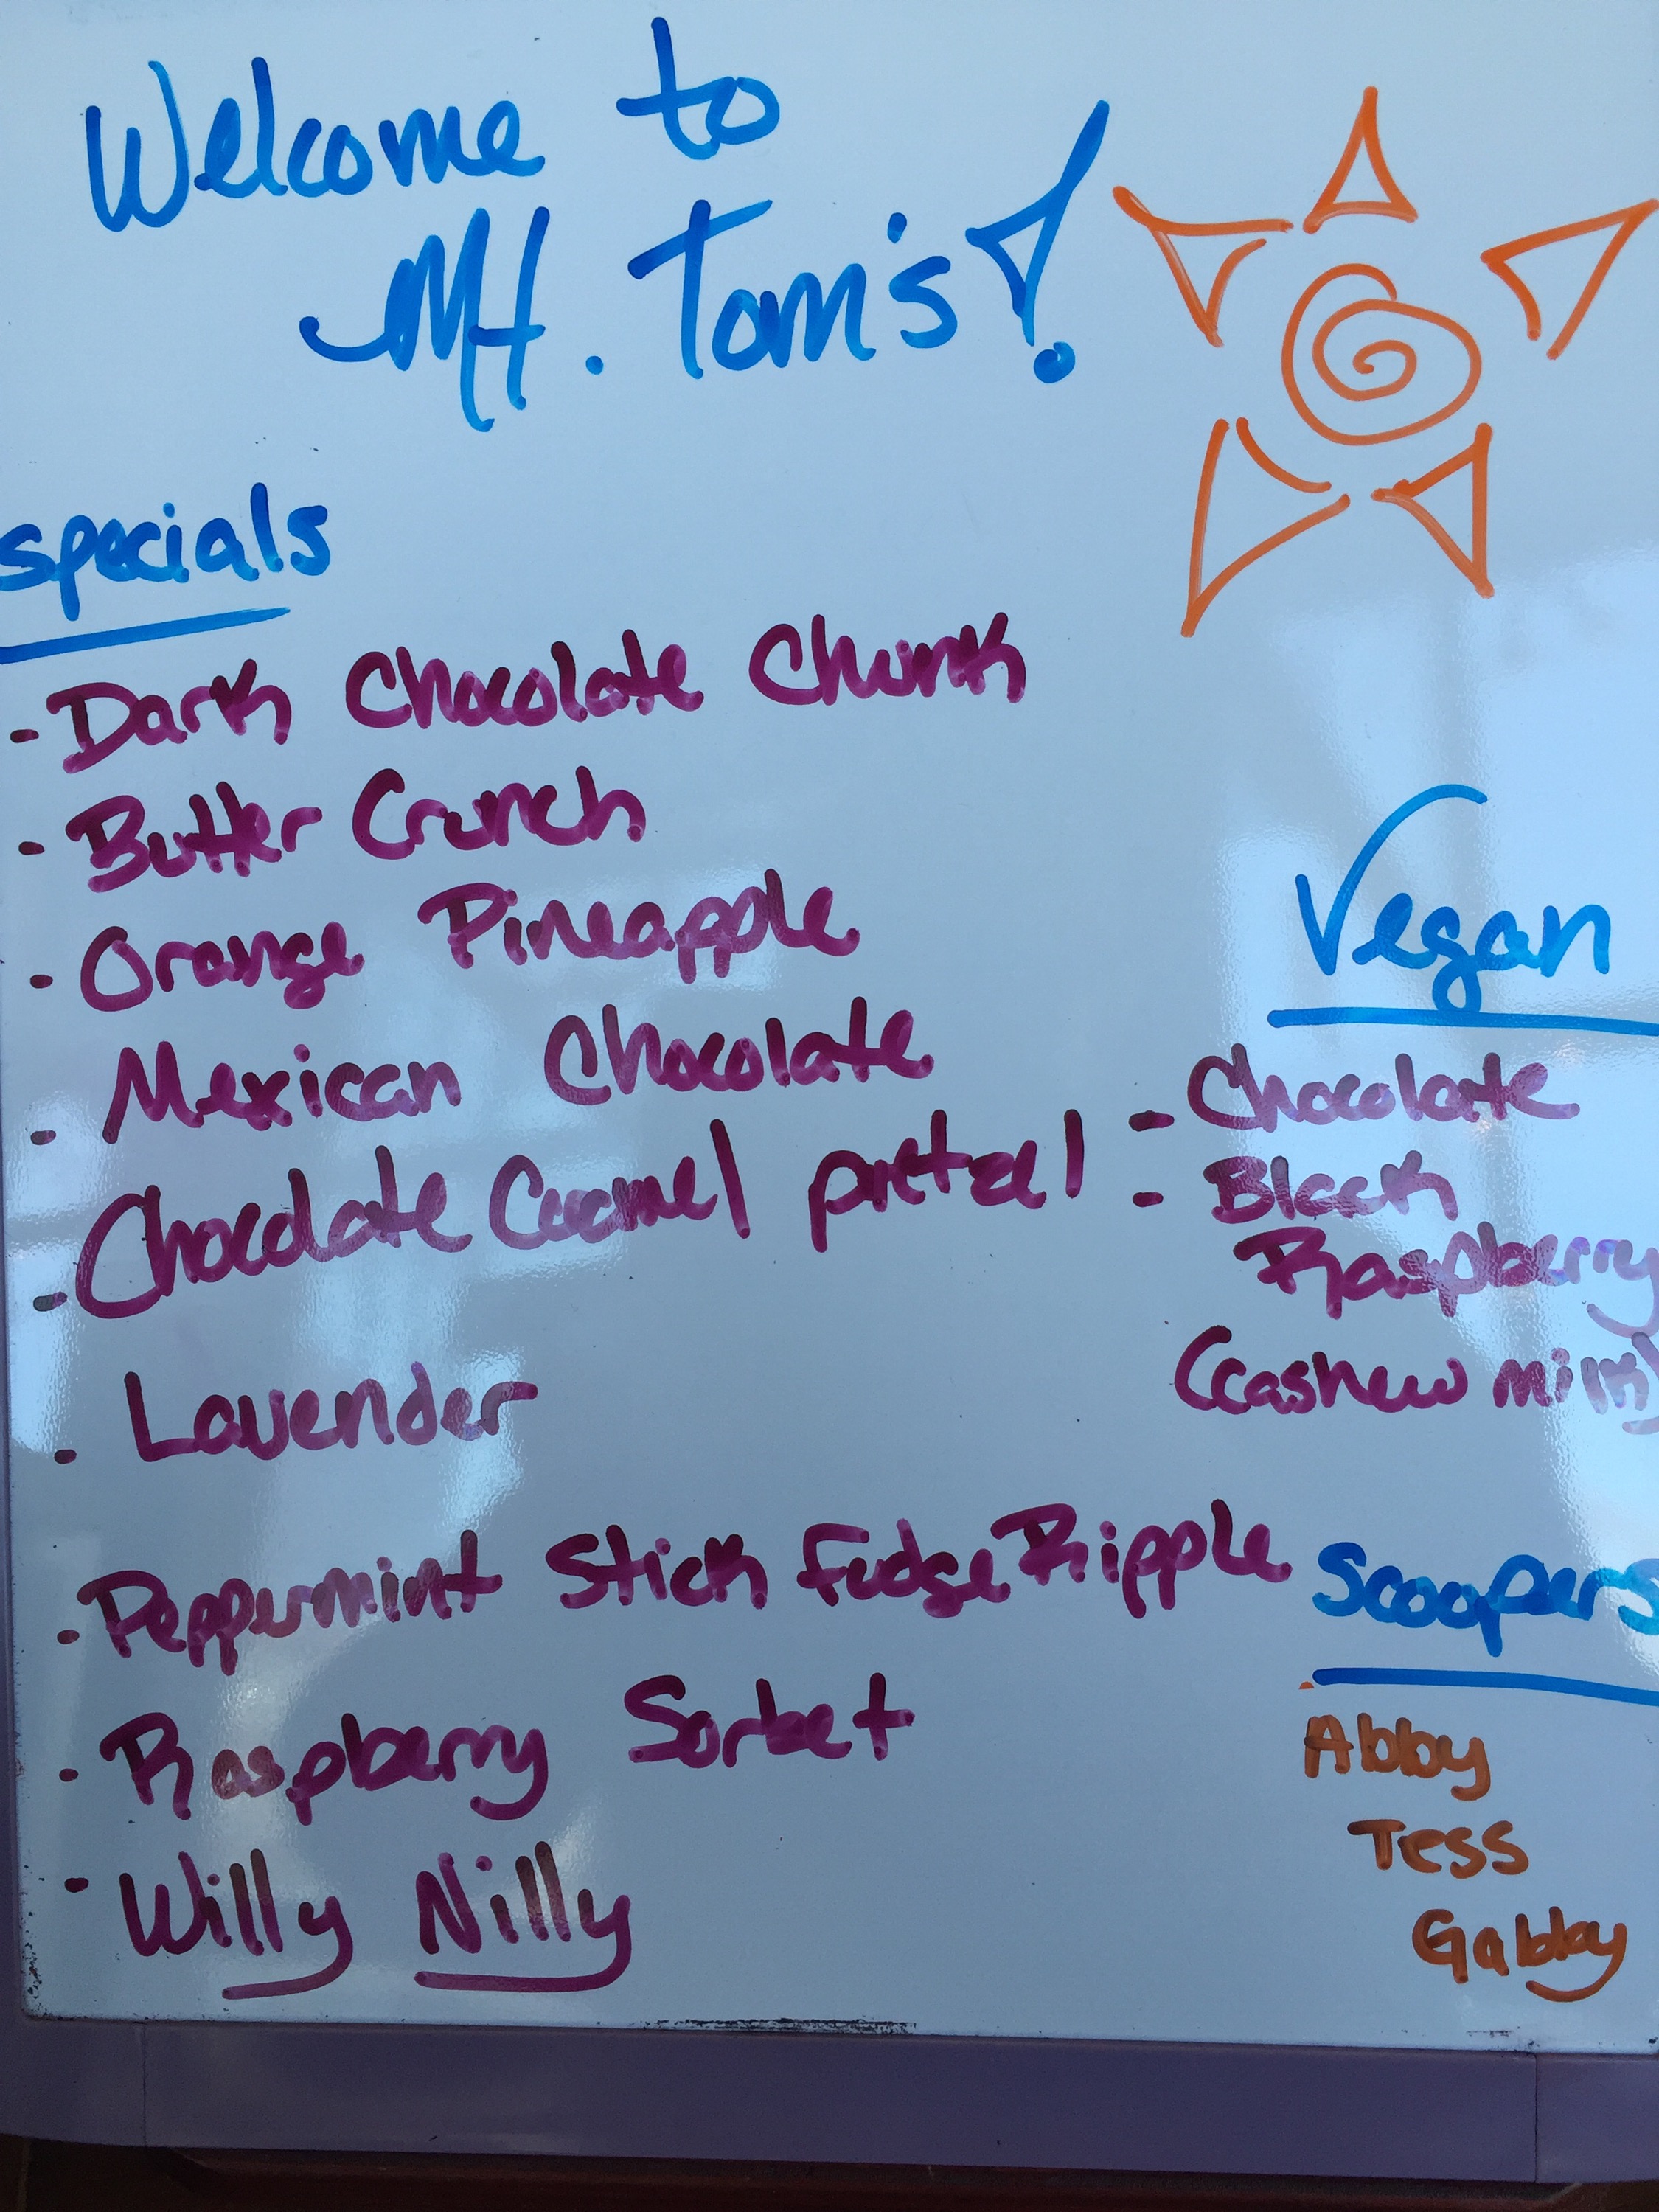 Welcome to
Mt. Tom's!
specials
- Dark Chocolate Chunk
- Butter Crunch
- Orange Pineapple
- Mexican Chocolate
- Chocolate Caramel pretzel
- Lavender
- Peppermint Stick Fudge Ripple
- Raspberry Sorbet
- Willy Nilly
Vegan
- Chocolate
- Black
Raspberry
(cashew milk)
Scoopers
Abby
Tess
Gabby